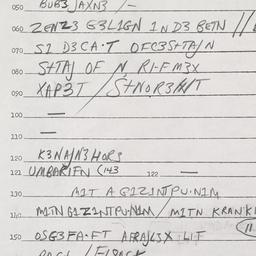 050 BUB3 JAXN3 / —
060 ZENZ3 G3L1GN 1ND3 BETN //
070 S1 D3CA·T OFC3S+TA/N
080 S+TAJ OF N R1-FM3X
090 XAP3T / S+NOR3H/T
100 —
110 —
120 K3NA/N3HORS
121 UMBARIFN (143 122 —
130 A1T A G1Z1NTPU·N1M
140 M1TN G1Z1NTPU·N1M / M1TN KRANK
150 OSG3FA·FT AFRA/L3X L1T